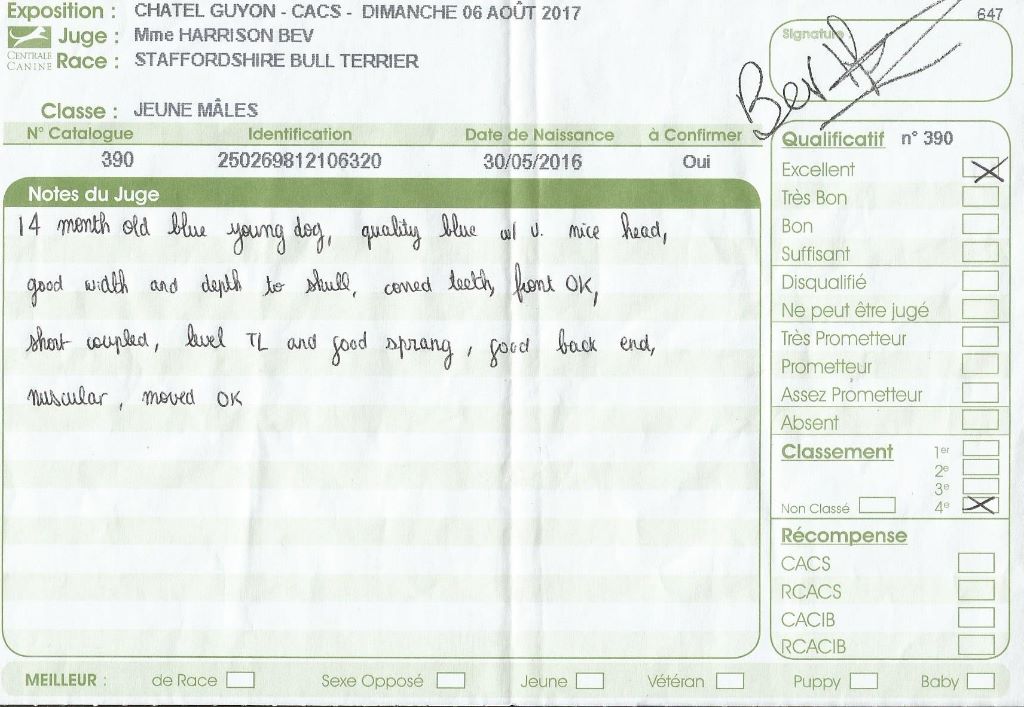 Exposition : CHATEL GUYON - CACS - DIMANCHE 06 AOÛT 2017
647
Juge : Mme HARRISON BEV
Signature
CENTRALE CANINE
Race : STAFFORDSHIRE BULL TERRIER
Classe : JEUNE MÂLES
N° Catalogue Identification Date de Naissance à Confirmer
390 250269812106320 30/05/2016 Oui
Notes du Juge
14 month old blue young dog, quality blue w/ v. nice head,
good width and depth to skull, coned teeth, front OK,
short coupled, level TL and good sprang, good back end,
muscular, moved OK
Qualificatif n° 390
Excellent X
Très Bon
Bon
Suffisant
Disqualifié
Ne peut être jugé
Très Prometteur
Prometteur
Assez Prometteur
Absent
Classement 1er
2e
3e
Non Classé 4e X
Récompense
CACS
RCACS
CACIB
RCACIB
MEILLEUR : de Race Sexe Opposé Jeune Vétéran Puppy Baby